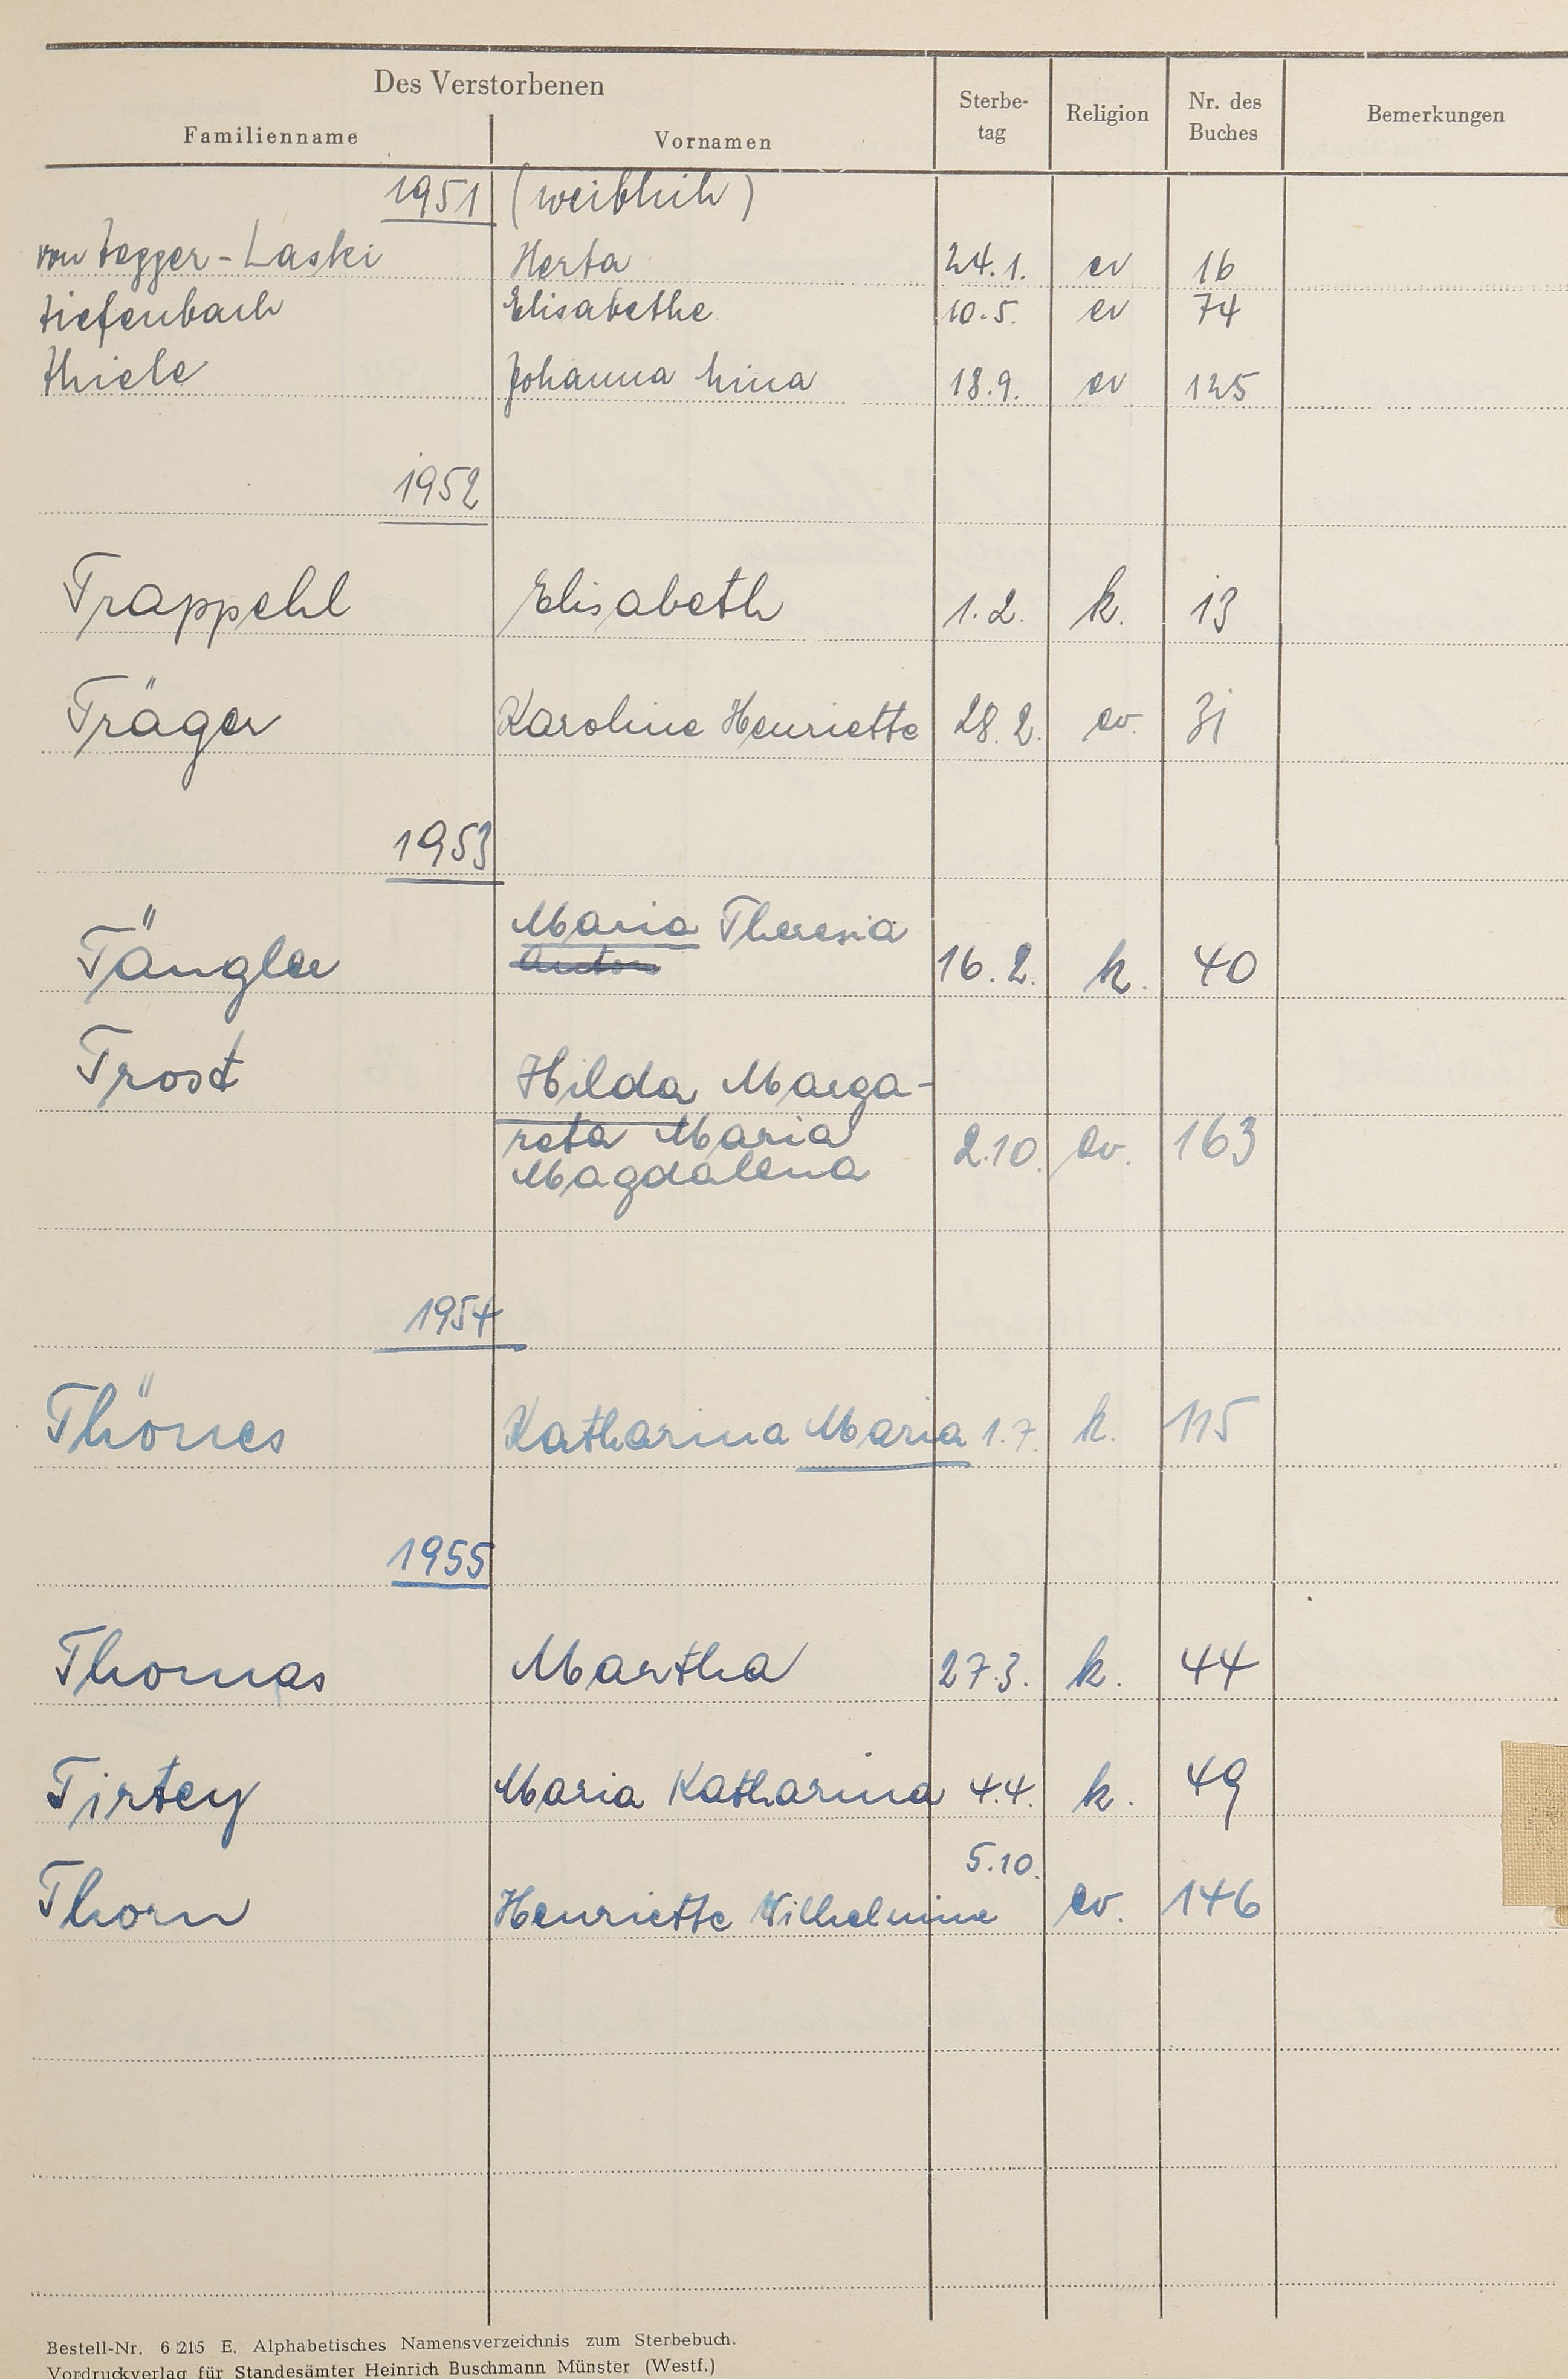 Des Verstorbenen
Familienname Vornamen Sterbe-tag Religion Nr. des Buches Bemerkungen
1951 (weiblich)
von Tegger-Laski Herta 24.1. ev 16
Tiefenbach Elisabethe 10.5. ev 74
Thiele Johanna Mina 18.9. ev 125
1952
Trappehl Elisabeth 1.2. k. 13
Träger Karoline Henriette 28.2. ev. 31
1953
Maria Theresia
Tängler Anton 16.2. k. 40
Trost Hilda Marga-
reta Maria 2.10. ev. 163
Magdalena
1954
Thönes Katharina Maria 1.7. k. 115
1955
Thomas Martha 27.3. k. 44
Tirtey Maria Katharina 4.4. k. 49
5.10.
Thorn Henriette Wilhelmine ev. 146
Bestell-Nr. 6 215 E. Alphabetisches Namensverzeichnis zum Sterbebuch.
Vordruckverlag für Standesämter Heinrich Buschmann Münster (Westf.)